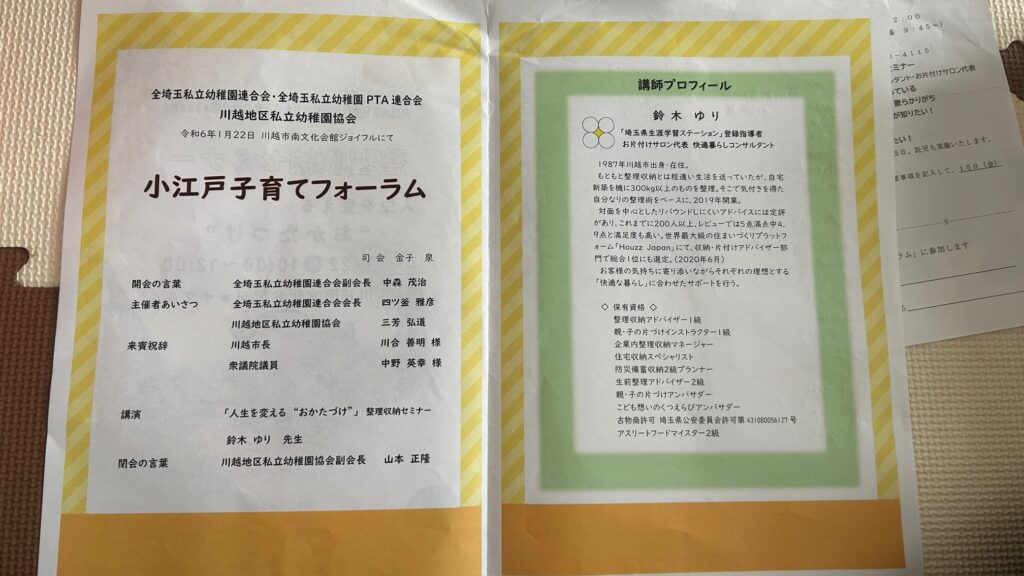 全埼玉私立幼稚園連合会・全埼玉私立幼稚園 PTA 連合会
川越地区私立幼稚園協会
令和6年1月22日 川越市南文化会館ジョイフルにて
小江戸子育てフォーラム
司会 金子 泉
開会の言葉 全埼玉私立幼稚園連合会副会長 中森 茂治
主催者あいさつ 全埼玉私立幼稚園連合会会長 四ツ釜 雅彦
川越地区私立幼稚園協会 三芳 弘道
来賓祝辞 川越市長 川合 善明 様
衆議院議員 中野 英幸 様
講演 「人生を変える “おかたづけ”」 整理収納セミナー
鈴木 ゆり 先生
閉会の言葉 川越地区私立幼稚園協会副会長 山本 正隆
講師プロフィール
鈴木 ゆり
「埼玉県生涯学習ステーション」登録指導者
お片付けサロン代表 快適暮らしコンサルタント
1987年川越市出身・在住。
もともと整理収納とは程遠い生活を送っていたが、自宅
新築を機に300kg以上のものを整理。そこで気付きを得た
自分なりの整理術をベースに、2019年開業。
対面を中心としたリバウンドしにくいアドバイスには定評
があり、これまでに200人以上、レビューでは5点満点中4.
9点と満足度も高い。世界最大級の住まいづくりプラットフ
ォーム「Houzz Japan」にて、収納・片付けアドバイザー部
門で総合1位にも選定。(2020年6月)
お客様の気持ちに寄り添いながらそれぞれの理想とする
「快適な暮らし」に合わせたサポートを行う。
◇ 保有資格 ◇
整理収納アドバイザー1級
親・子の片づけインストラクター1級
企業内整理収納マネージャー
住宅収納スペシャリスト
防災備蓄収納2級プランナー
生前整理アドバイザー2級
親・子の片づけアンバサダー
こども想いのくつえらびアンバサダー
古物商許可 埼玉県公安委員会許可第431080056127号
アスリートフードマイスター2級
2:00
9:45～)
-4115
ミナー
タント・お片付けサロン代表
っている
散らかりがち
が知りたい!
たい!
当日、託児も実施いたします。
事項を記入して、15日(金)
り
ラム」に参加します